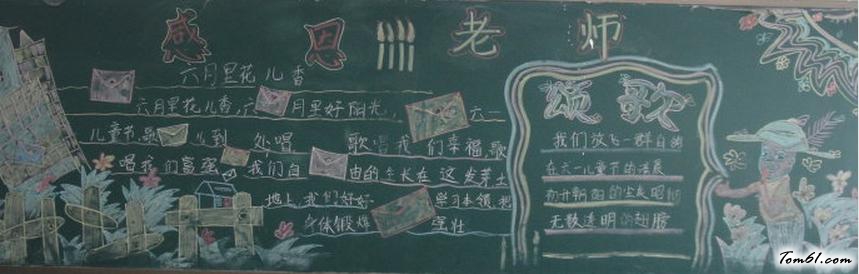 感恩老师
六月里花儿香
六月里花儿香,六月里好阳光,六一
儿童节,歌儿到处唱 歌唱我们幸福,歌
唱我们富强 我们自由的生长在这发芽土
地上,我们好好学习本领,把
身体锻炼 坚壮
颂歌
我们放飞一群白鸽
在六一儿童节的清晨
初升朝阳的
无数透明的翅膀
Tom61.com